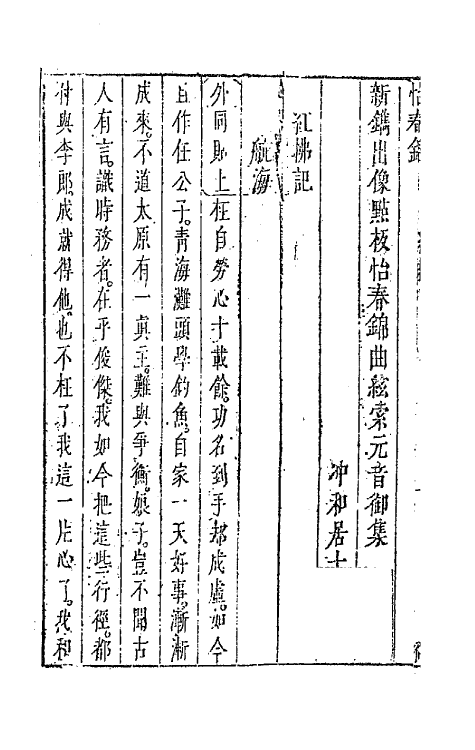 怡春錦
新鐫出像點板怡春錦曲絃索元音御集
冲和居士
紅拂記
航海
外同貼上枉自勞心十載餘。功名到手却成虛。如今
且作任公子。靑海灘頭學釣魚。自家一天好事。漸漸
成來。不道太原有一眞主。難與爭衡。娘子。豈不聞古
人有言。識時務者。在乎俊傑。我如今把這些行徑。都
付與李郎。成就得他。也不枉了我這一片心了。我和